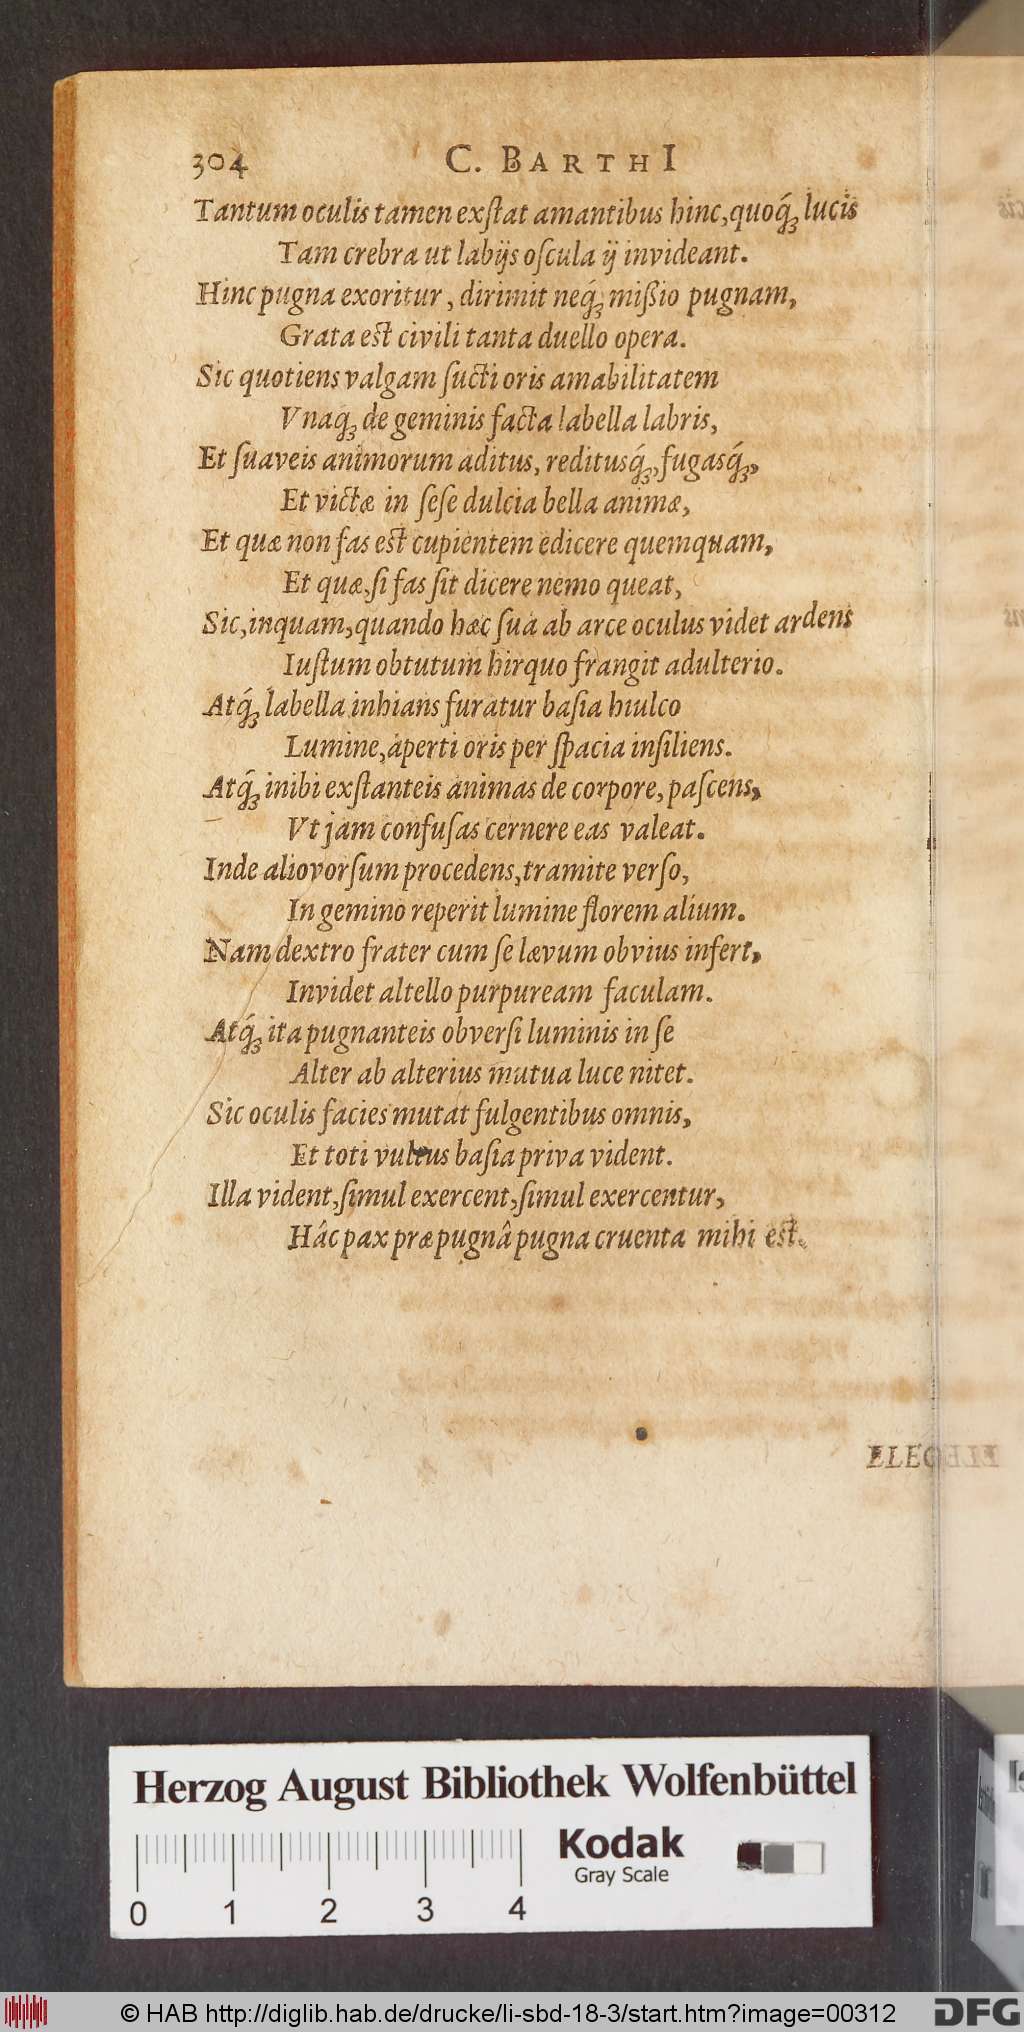 304 C. BARTHI
Tantum oculis tamen exſtat amantibus hinc, quoq́ꝫ lucis
Tam crebra ut labijs oſcula ij invideant.
Hinc pugna exoritur, dirimit neq́ꝫ mißio pugnam,
Grata est civili tanta duello opera.
Sic quotiens valgam ſucti oris amabilitatem
Vnaqꝫ de geminis facta labella labris,
Et ſuaveis animorum aditus, reditusq́ꝫ, fugasq́ꝫ,
Et victæ in ſeſe dulcia bella animæ,
Et quæ non fas est cupientem edicere quemquam,
Et quæ, ſi fas ſit dicere nemo queat,
Sic, inquam, quando hæc ſua ab arce oculus videt ardens
Iuſtum obtutum hirquo frangit adulterio.
Atq́ꝫ labella inhians furatur baſia hiulco
Lumine, aperti oris per ſpacia inſiliens.
Atq́ꝫ inibi exſtanteis animas de corpore, paſcens,
Vt jam confuſas cernere eas valeat.
Inde aliovorſum procedens, tramite verſo,
In gemino reperit lumine florem alium.
Nam dextro frater cum ſe lævum obvius infert,
Invidet altello purpuream faculam.
Atq́ꝫ ita pugnanteis obverſi luminis in ſe
Alter ab alterius mutua luce nitet.
Sic oculis facies mutat fulgentibus omnis,
Et toti vultus baſia priva vident.
Illa vident, ſimul exercent, ſimul exercentur,
Hâc pax præ pugnâ pugna cruenta mihi est.
Herzog August Bibliothek Wolfenbüttel
Kodak
Gray Scale
0 1 2 3 4
© HAB http://diglib.hab.de/drucke/li-sbd-18-3/start.htm?image=00312
DFG